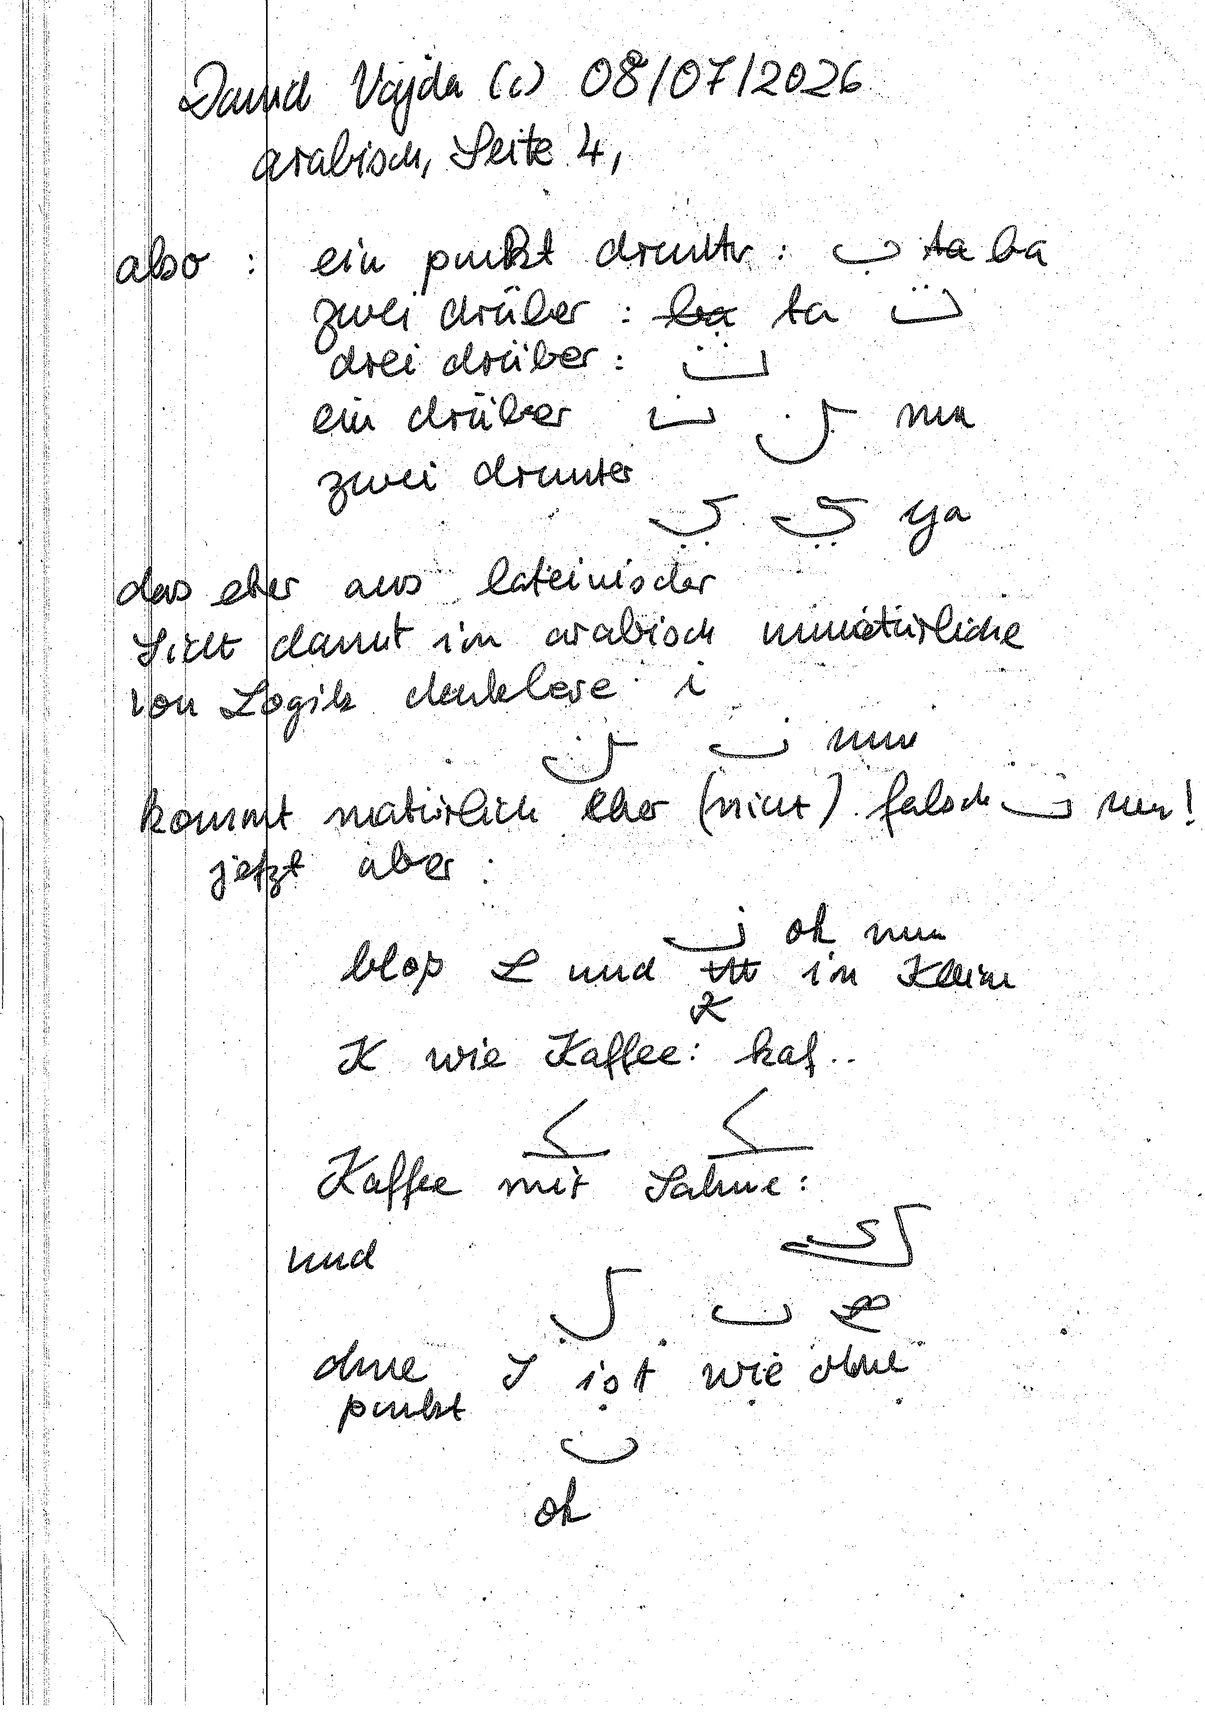 David Vajda (c) 08/07/2026
arabisch, Seite 4,
also : ein punkt drunter : ب ta ba
zwei drüber : ba ta ت
drei drüber : ث
ein drüber ن ن nun
zwei drunter
ي ي ya
das eher aus lateinischer
Sicht damit im arabisch unnatürliche
von Logik denkbare i
ن ن nun
kommt natürlich eher (nicht) falsch ن nun!
jetzt aber :
ن ok nun
bloß L und in Klein
K
K wie Kaffee: kaf..
ک ک
Kaffee mit Sahne:
ك
und
ل
ohne I ist wie ohne
punkt
ن
ok